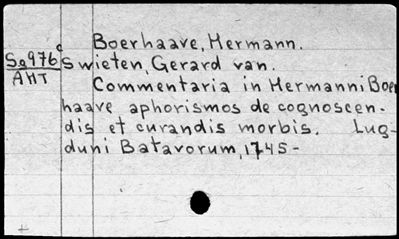 Boerhaave, Hermann.
Sa976c Swieten, Gerard van.
AHT
Commentaria in Hermanni Boer
haave aphorismos de cognoscen-
dis et curandis morbis. Lug-
duni Batavorum, 1745-